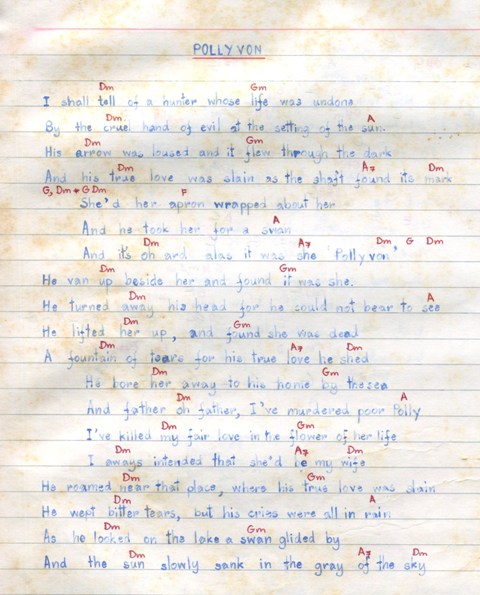 POLLY VON
Dm Gm
I shall tell of a hunter whose life was undone
Dm A
By the cruel hand of evil at the setting of the sun.
Dm Gm
His arrow was loused and it flew through the dark
Dm A7 Dm
And his true love was slain as the shaft found its mark
G, Dm + G Dm F
She'd her apron wrapped about her
A
And he took her for a swan
Dm A7 Dm G Dm
And it's oh and alas it was she 'Polly von'
Dm Gm
He van up beside her and found it was she.
Dm A
He turned away his head for he could not bear to see
Dm Gm
He lifted her up, and found she was dead
Dm A7 Dm
A fountain of tears for his true love he shed
Dm Gm
He bore her away to his home by the sea
Dm A
And father oh father, I've murdered poor Polly
Dm Gm
I've killed my fair love in the flower of her life
Dm A7 Dm
I aways intended that she'd be my wife
Dm Gm
He roamed near that place, where his true love was slain
Dm A
He wept bitter tears, but his cries were all in rain
Dm Gm
As he looked on the lake a swan glided by
Dm A7 Dm
And the sun slowly sank in the gray of the sky